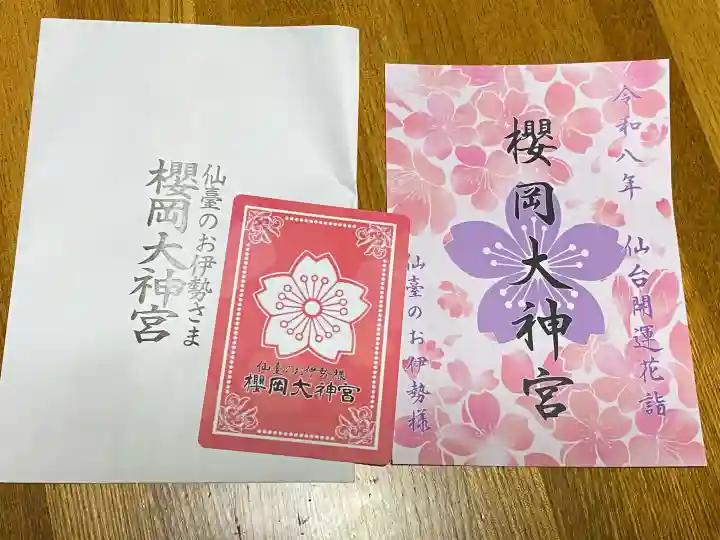 仙臺のお伊勢さま
櫻岡大神宮
仙臺のお伊勢様
櫻岡大神宮
令和八年　仙台開運花詣
櫻岡大神宮
仙臺のお伊勢様